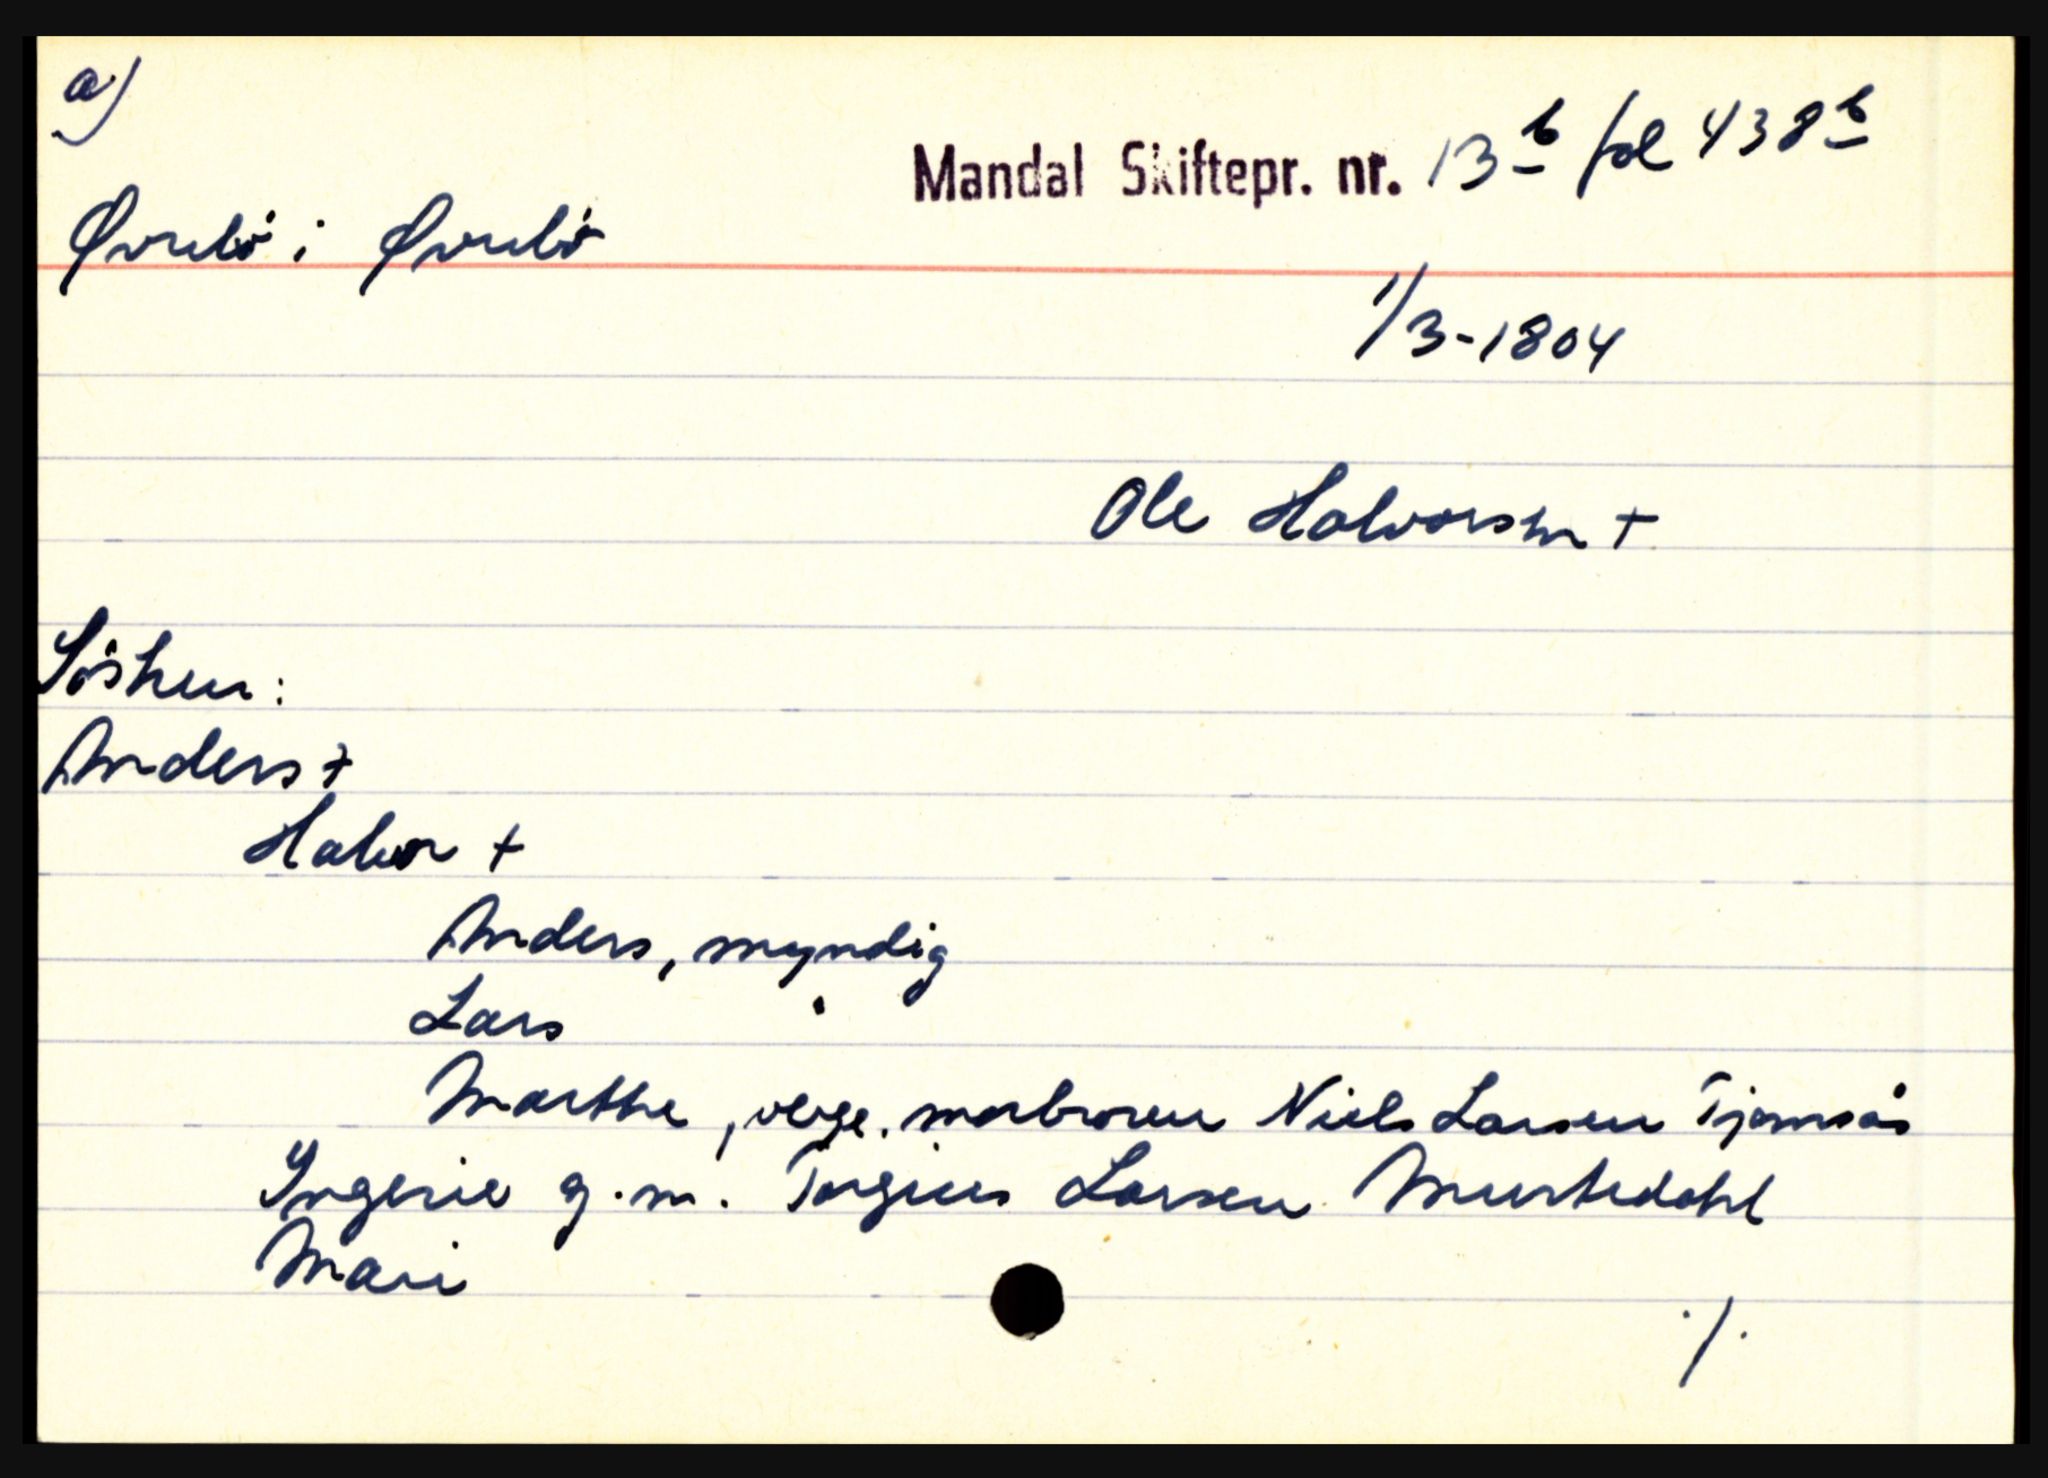 a)
Mandal Skiftepr. nr. 13 b fol 438 b
Øvrebö i Øvrebö
1/3-1804
Ole Halvorsen +
Sösken:
Anders +
Halvor +
Anders, myndig
Lars "
Marthe, verge. morbroren Niels Larsen Tjomsås
Ingerie g.m. Torgius Larsen
Mari
./.